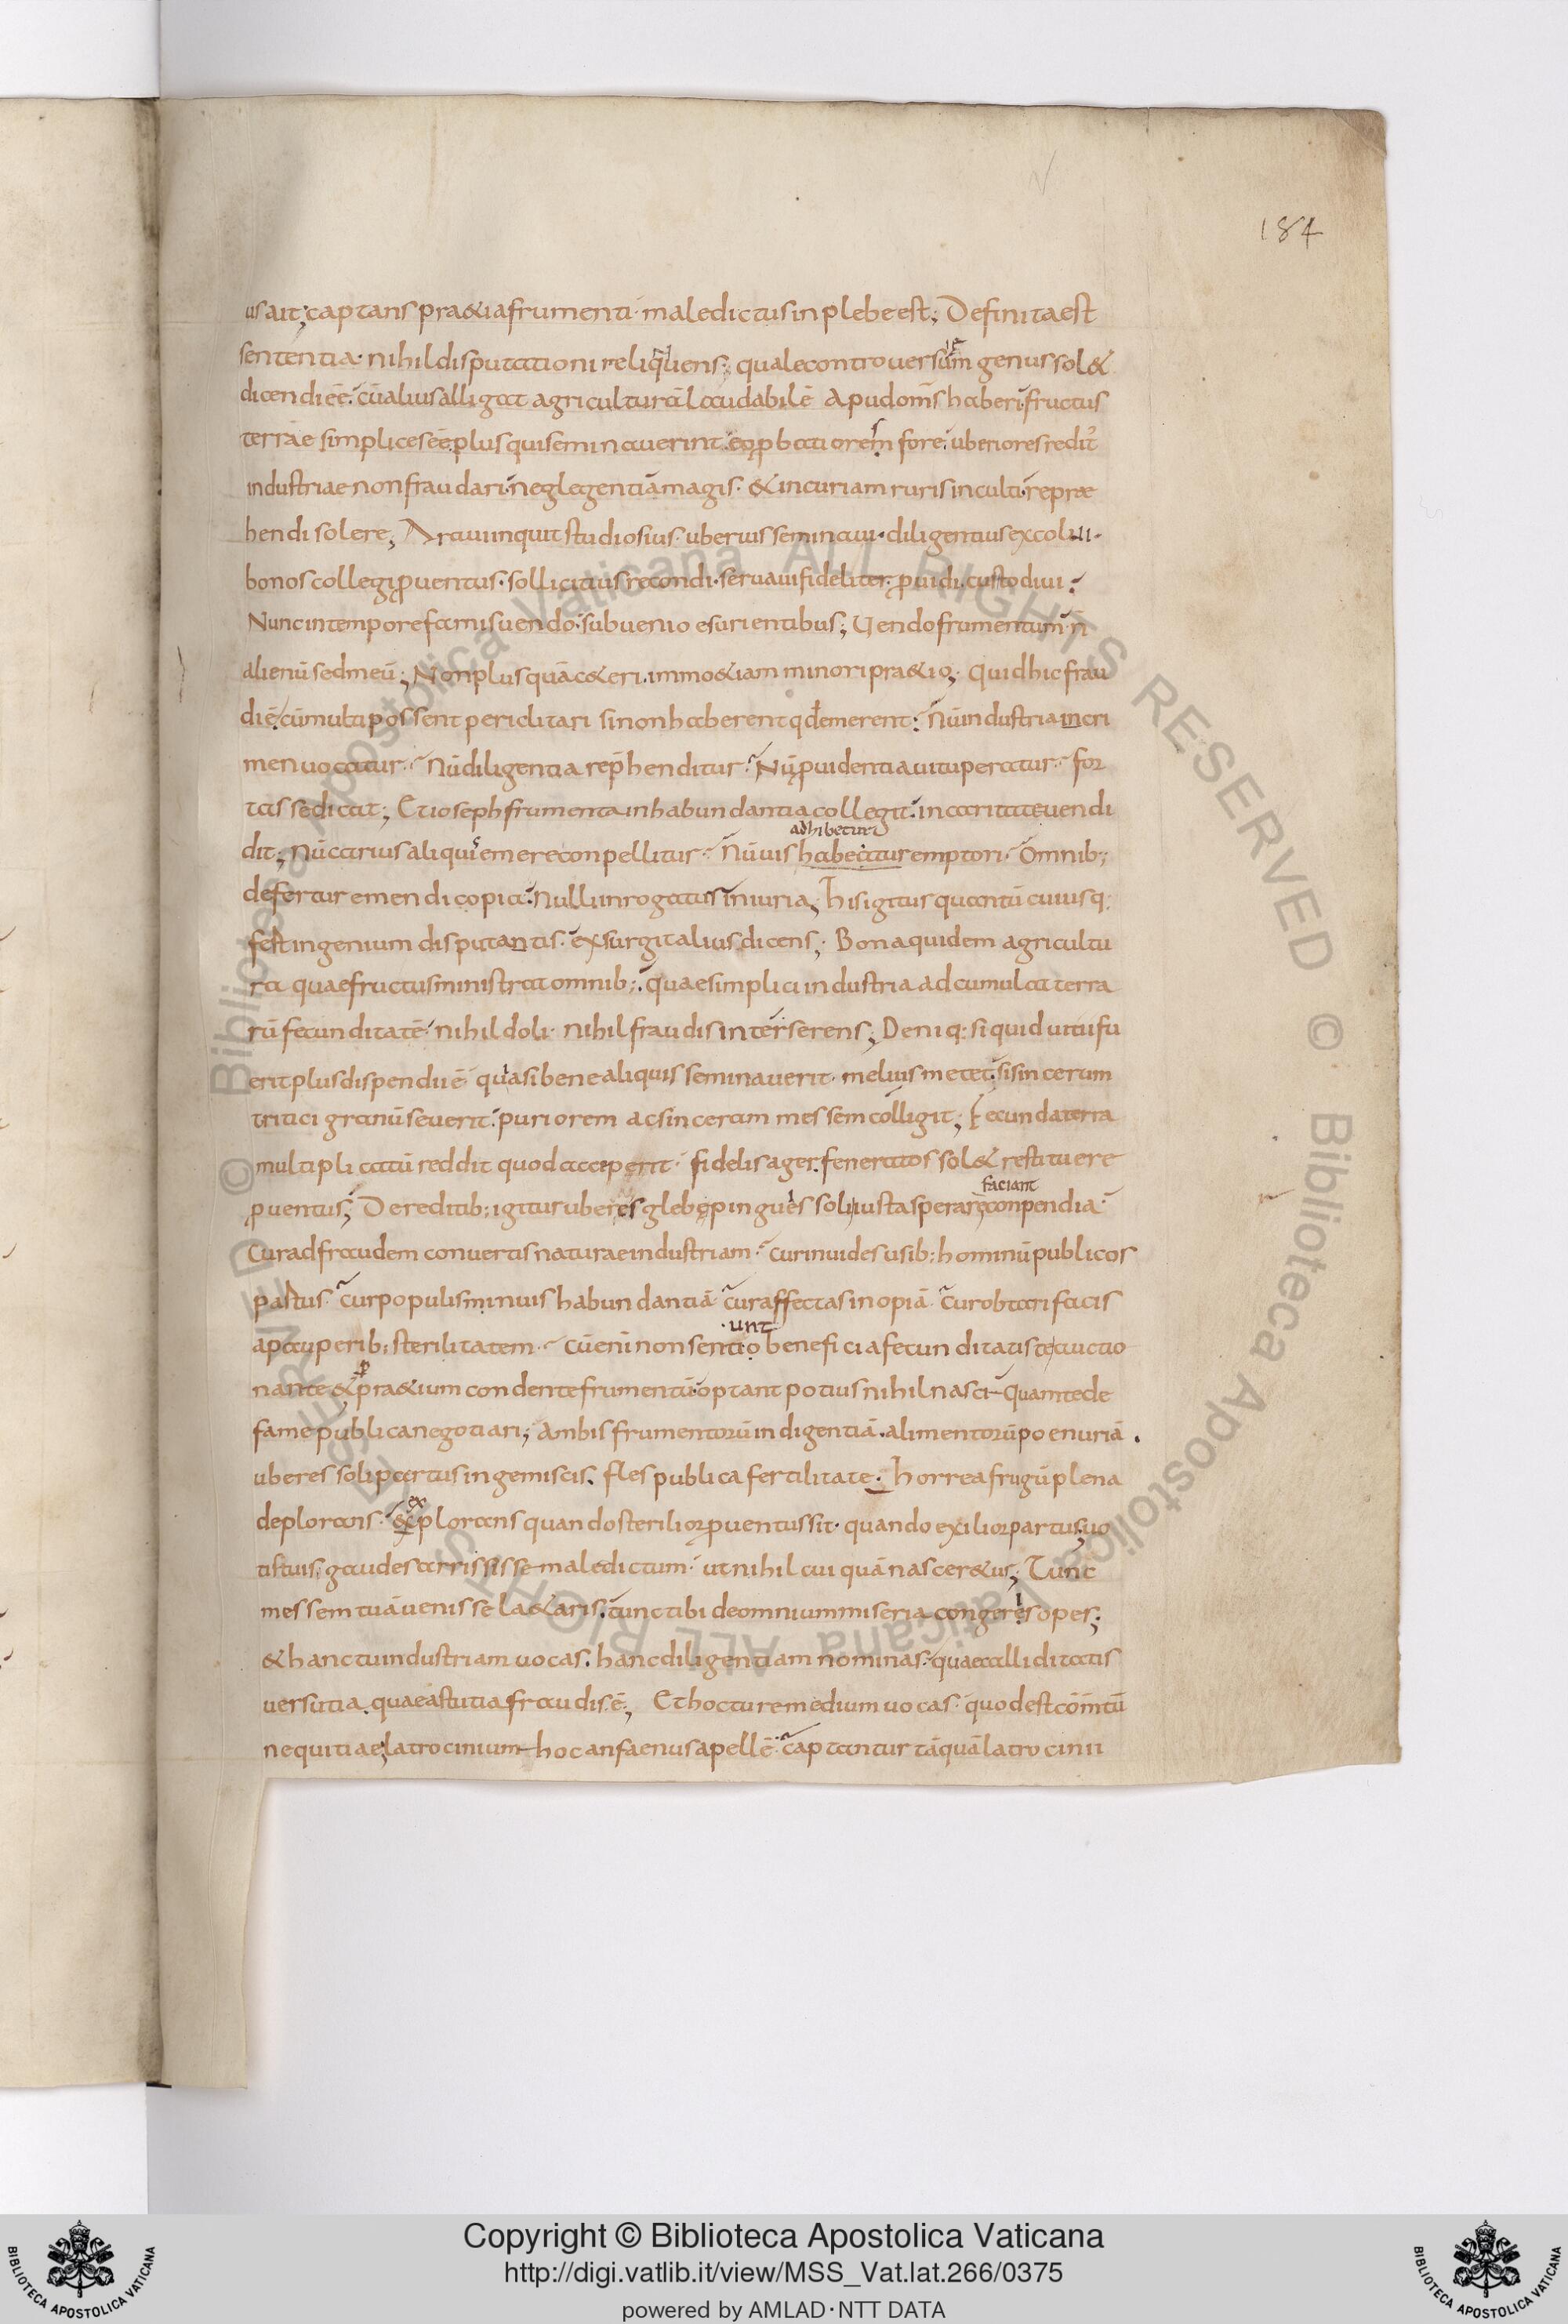 184
us ait; captans pra&ia frumenti· maledictus in plebe est; Definita est
sententia· nihil disputationi reliquiens; quale controversum genus sol&
dicendi eē· cū alius alligat agriculturā laudabilē apud omīs haberi· fructus
terrae simplices eē· plus qui seminaverint· eo ꝓbatiorem fore· uberiores redit᷒
industriae non fraudari· neglegentiā magis· & incuriam ruris inculti· reprae
hendi solere; Aravi inquit studiosius· uberius seminavi· diligentius excolui·
bonos collegi ꝓventus· sollicitius recondi· servavi fideliter· ꝓvidi· custodivi·
Nunc in tempore famis vendo· subvenio esurientibus; Vendo frumentum n̄
alienū sed meū; Non plus quā c&eri· immo &iam minori pra&io; Quid hic frau
di ē· cū multi possent periclitari si non haberent qđ emerent· Nū industria in cri
men vocatur· Nū diligentia rep̄henditur· Nū ꝓvidentia vituperatur· for
tasse dicat; Et ioseph frumenta in habundantia collegit· in caritate vendi
adhibetur
dit; Nū carius aliquis emere conpellitur· Nū vis habeatur emptori· Omnib;
defertur emendi copia· Nulli inrogatus iniuria; His igitur quantū cuiusq:
fert ingenium disputantis· exsurgit alius dicens; Bona quidem agricultu
ra quae fructus ministrat omnib;· quae simplici industria adcumulat terra
rū fecunditatē· nihil doli· nihil fraudis interserens; Deniq: si quid vitii fu
erit plus dispendii ē· quasi bene aliquis seminaverit· melius metet· si sincerum
tritici granū severit· puriorem ac sinceram messem colligit; Fecunda terra
multiplicatū reddit quod acceperit· fidelis ager· feneratos sol& restituere
faciant
ꝓventus; De reditib: igitur uberes glebę pingues soli iusta sperare conpendia·
Cur ad fraudem convertis naturae industriam· cur invides usib: hominū publicos
partus· cur populis minuis habundantiā· cur affectas inopiā· cur obtari facis
·unt
a pauperib: sterilitatem· Cū enī non sentio beneficia fecunditatis te auctio
ꝓ
nante & pra&ium condente frumentū· optant potius nihil nasci quam te de
fame publica negotiari; Ambis frumentorū indigentiā· alimentorū poenuriā·
uberes soli partus ingemiscis· fles publica fertilitate· horrea frugū plena
ex
deplorans· & plorans quando sterilior ꝓventus sit· quando exilior partus; vo
tis tuis gaudes arrississe maledictum· ut nihil cui quā nascer&ur; Tunc
messem tuā venisse la&aris· tunc tibi de omnium miseria congeres opes;
& hanc tu industriam vocas· hanc diligentiam nominas· quae calliditatis
versutia· quae astutia fraudis ē; Et hoc tu remedium vocas· quod est cōmtū
nequitiae; latrocinium hoc an faenus apellē· captantur tā quā latrocinii
Copyright © Biblioteca Apostolica Vaticana
http://digi.vatlib.it/view/MSS_Vat.lat.266/0375
powered by AMLAD·NTT DATA
BIBLIOTECA APOSTOLICA VATICANA
BIBLIOTECA APOSTOLICA VATICANA
© Biblioteca Apostolica Vaticana ALL RIGHTS RESERVED
© Biblioteca Apostolica Vaticana ALL RIGHTS RESERVED